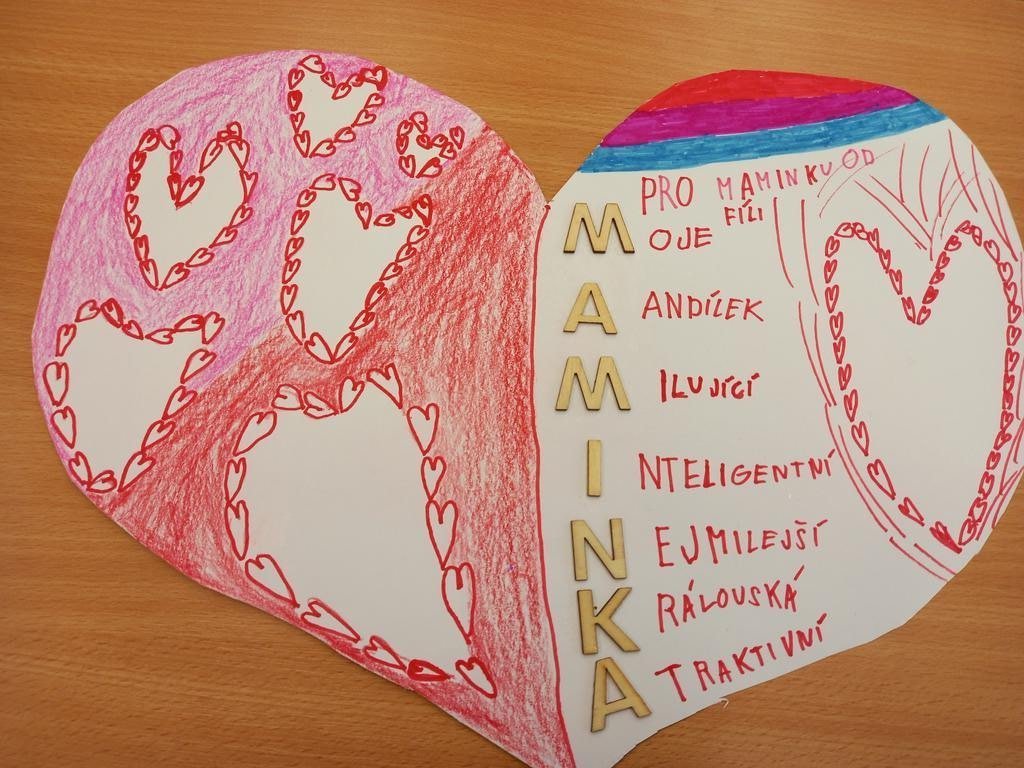 PRO MAMINKU OD
FÍLI
MOJE
ANDÍLEK
MILUJÍCÍ
INTELIGENTNÍ
NEJMILEJŠÍ
KRÁLOUSKÁ
ATRAKTIVNÍ